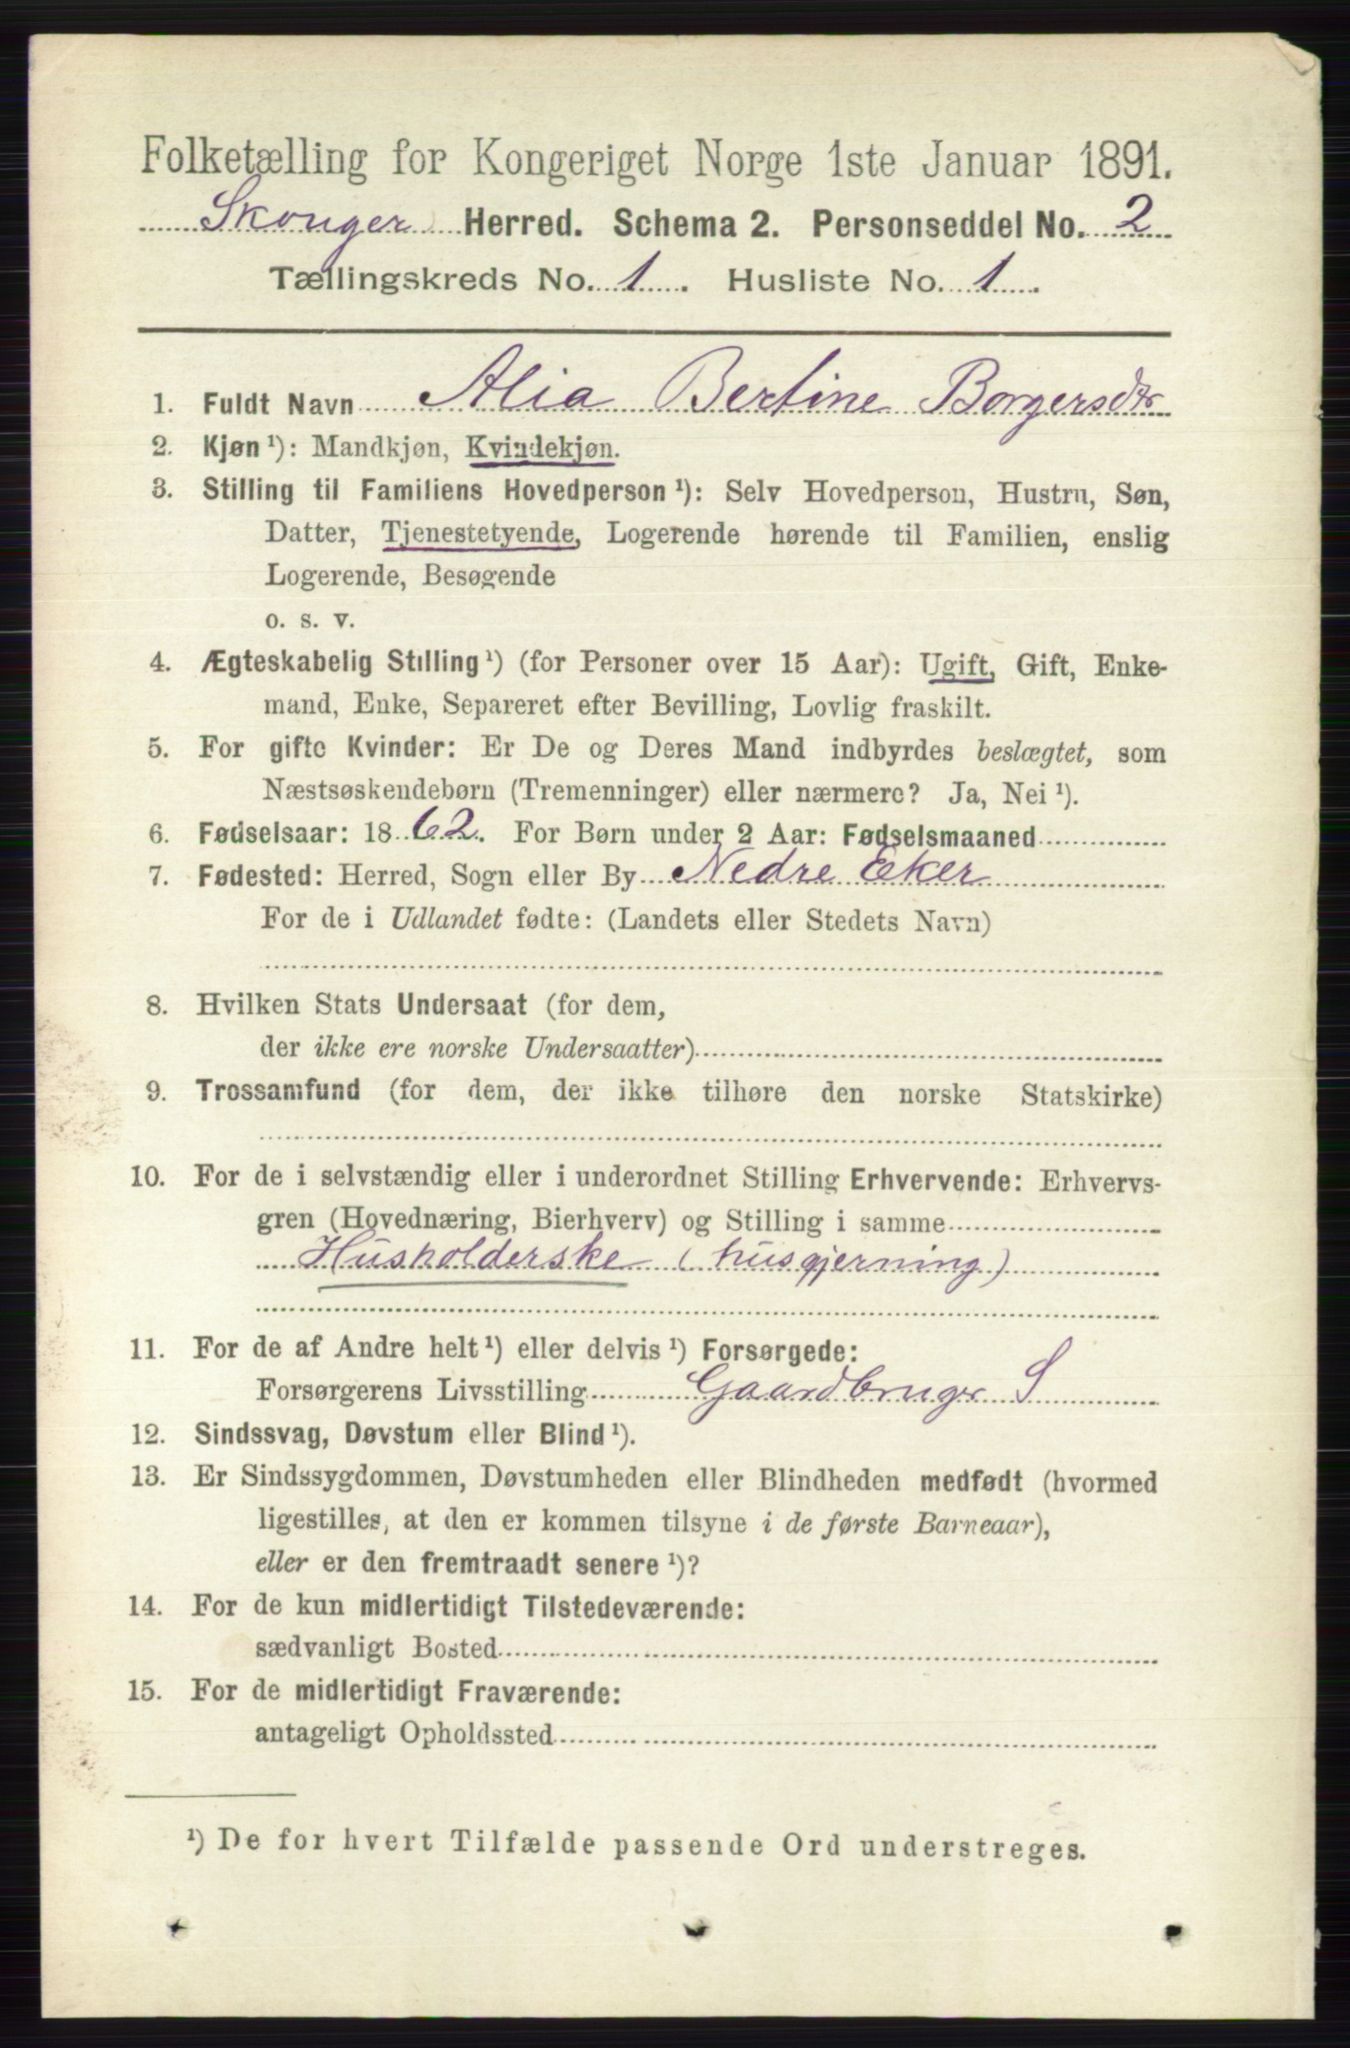 Folketælling for Kongeriget Norge 1ste Januar 1891.
Skouger Herred. Schema 2. Personseddel No. 2
Tællingskreds No. 1. Husliste No. 1.
1. Fuldt Navn Alia Bertine Borgersdtr
2. Kjøn ¹): Mandkjøn, Kvindekjøn.
3. Stilling til Familiens Hovedperson ¹): Selv Hovedperson, Hustru, Søn,
Datter, Tjenestetyende, Logerende hørende til Familien, enslig
Logerende, Besøgende
o. s. v.
4. Ægteskabelig Stilling ¹) (for Personer over 15 Aar): Ugift, Gift, Enke-
mand, Enke, Separeret efter Bevilling, Lovlig fraskilt.
5. For gifte Kvinder: Er De og Deres Mand indbyrdes beslægtet, som
Næstsøskendebørn (Tremenninger) eller nærmere? Ja, Nei ¹).
6. Fødselsaar: 1862. For Børn under 2 Aar: Fødselsmaaned
7. Fødested: Herred, Sogn eller By Nedre Eker
For de i Udlandet fødte: (Landets eller Stedets Navn)
8. Hvilken Stats Undersaat (for dem,
der ikke ere norske Undersaatter)
9. Trossamfund (for dem, der ikke tilhøre den norske Statskirke)
10. For de i selvstændig eller i underordnet Stilling Erhvervende: Erhvervs-
gren (Hovednæring, Bierhverv) og Stilling i samme
Husholderske (husgjerning)
11. For de af Andre helt ¹) eller delvis ¹) Forsørgede:
Forsørgerens Livsstilling Gaardbruger S
12. Sindssvag, Døvstum eller Blind ¹).
13. Er Sindssygdommen, Døvstumheden eller Blindheden medfødt (hvormed
ligestilles, at den er kommen tilsyne i de første Barneaar),
eller er den fremtraadt senere ¹)?
14. For de kun midlertidigt Tilstedeværende:
sædvanligt Bosted
15. For de midlertidigt Fraværende:
antageligt Opholdssted
¹) De for hvert Tilfælde passende Ord understreges.